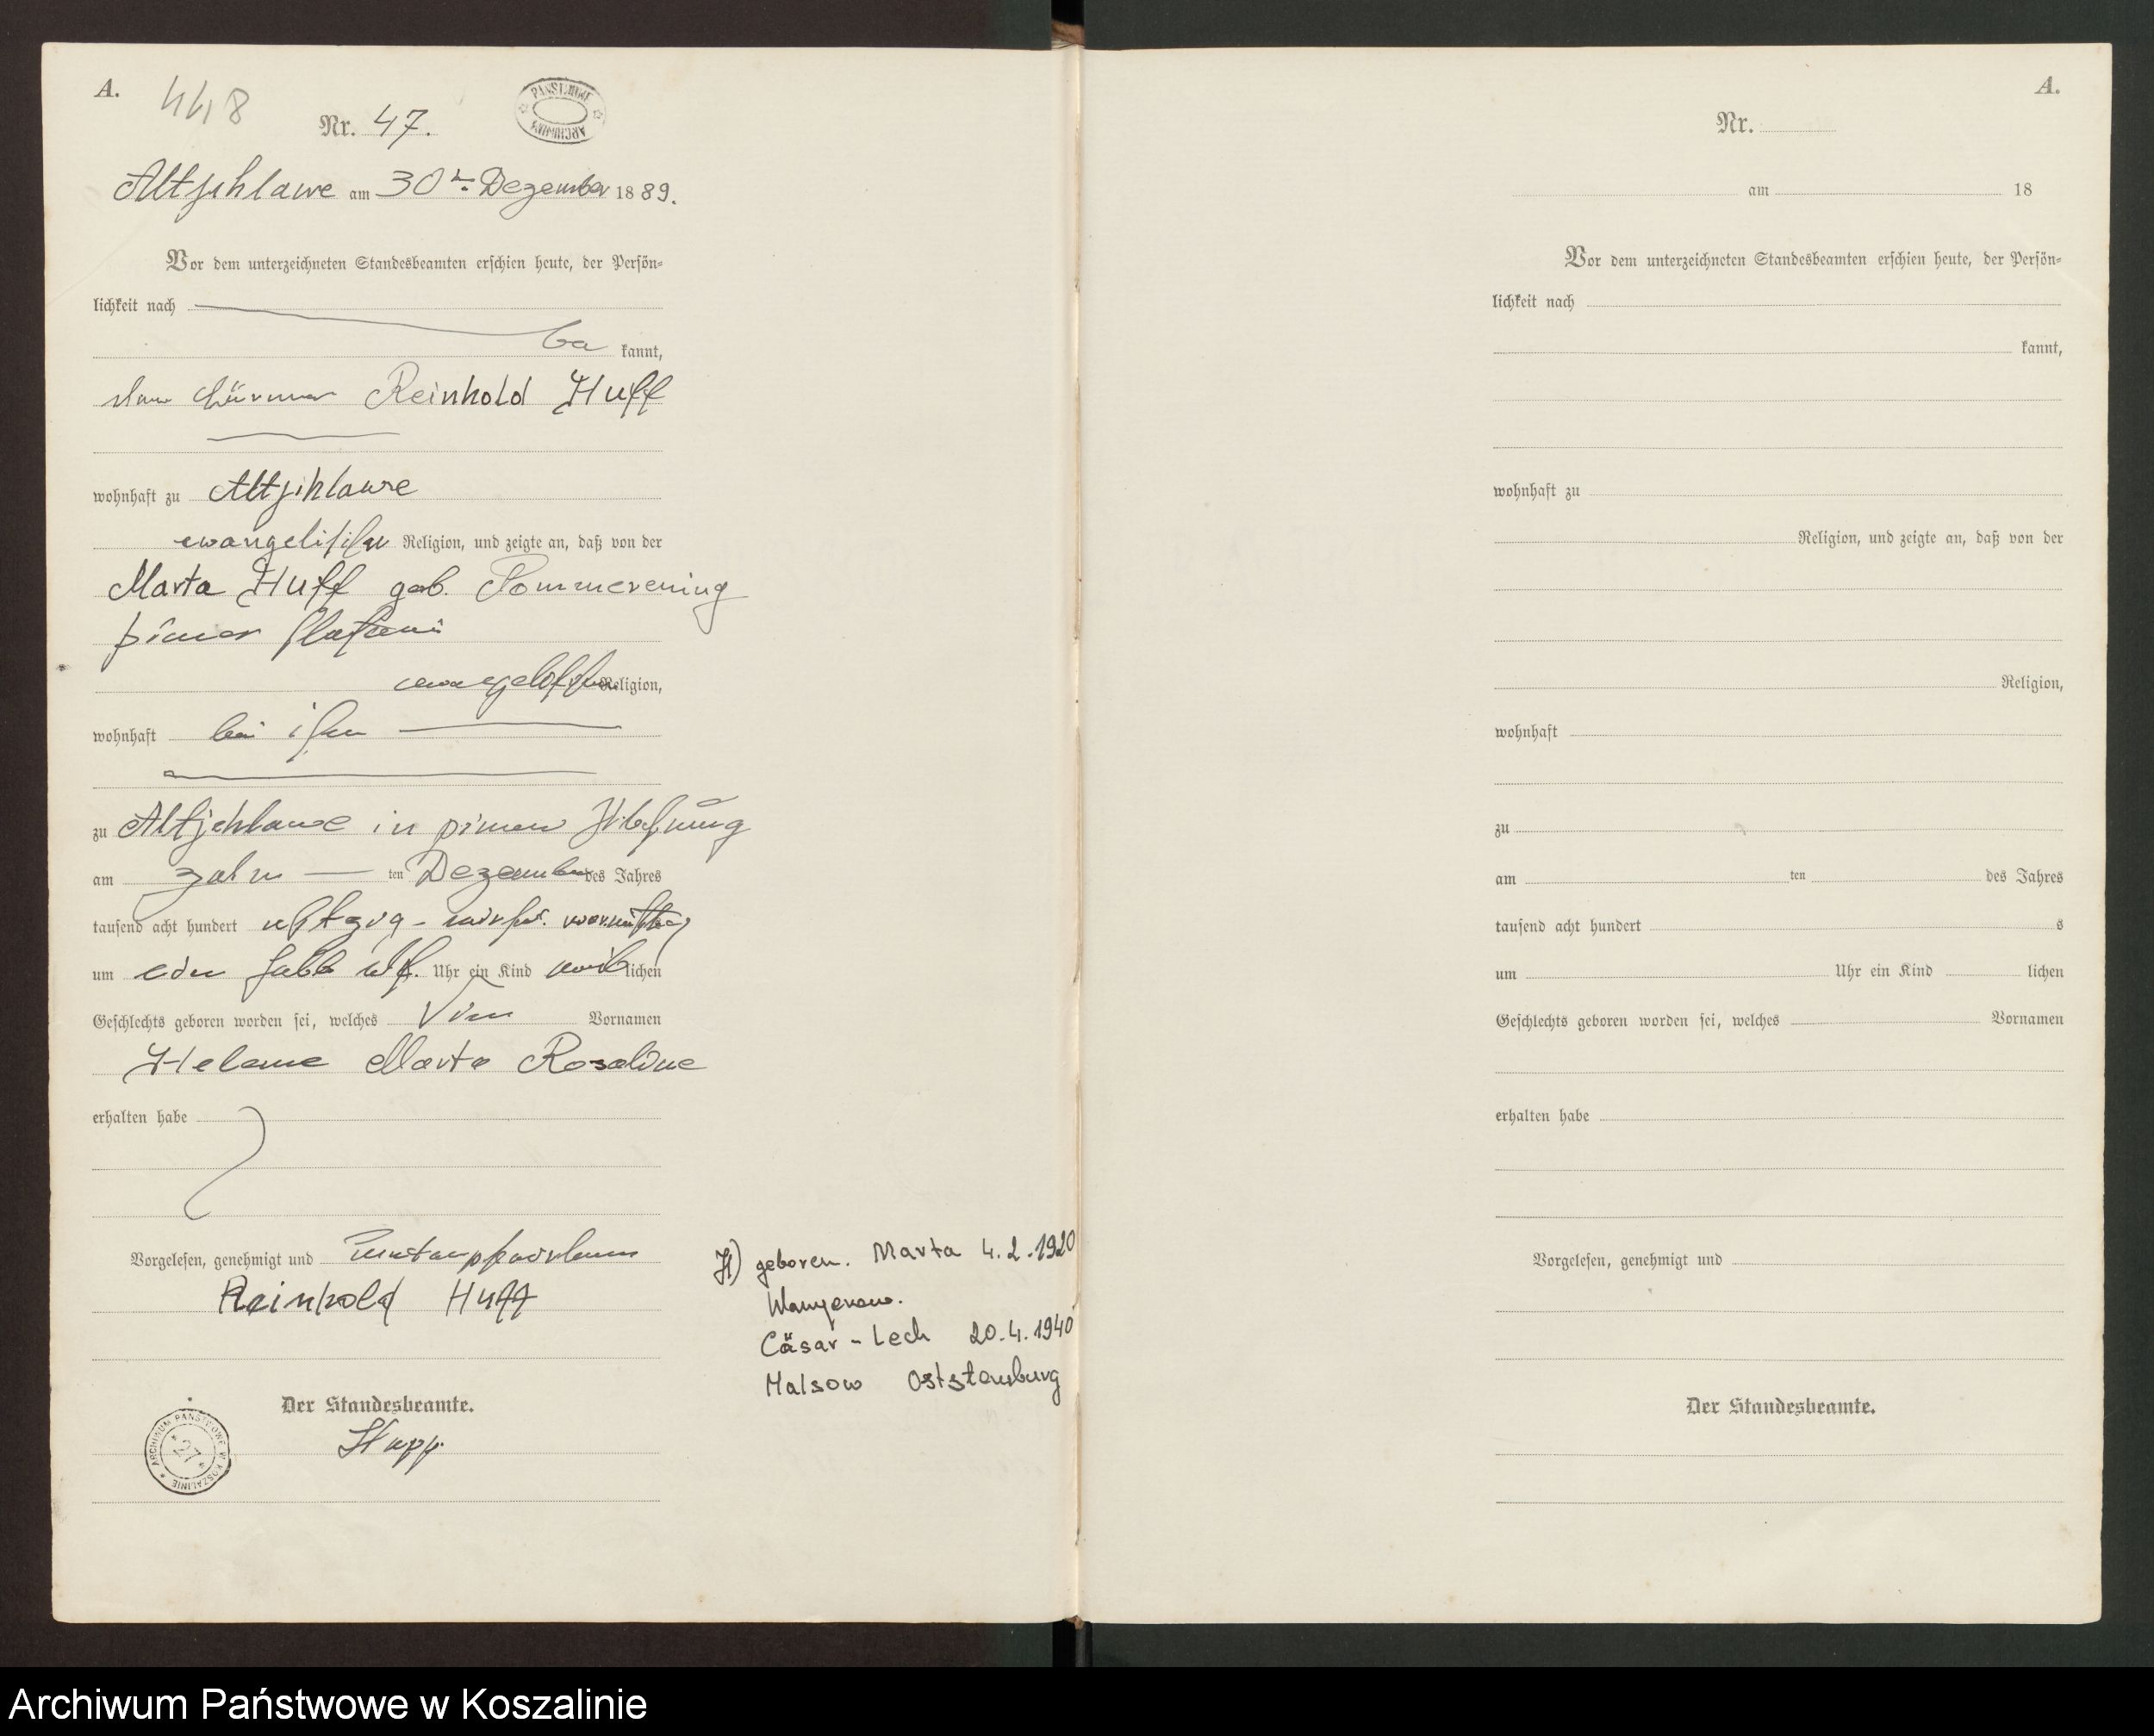 A.
448
Nr. 47.
PAŃSTWOWE ARCHIWUM
Altschlawe am 30ten Dezember 1889.
Vor dem unterzeichneten Standesbeamten erschien heute, der Persön-
lichkeit nach
be kannt,
Reinhold Huff
wohnhaft zu Altschlawe
evangelischer Religion, und zeigte an, daß von der
Marta Huff geb. Pommerening
seiner Ehefrau
evangelischer Religion,
wohnhaft bei ihm
zu Altschlawe in seiner Wohnung
am ten Dezember des Jahres
tausend acht hundert achtzig - vormittags
um ein halb Uhr ein Kind weiblichen
Geschlechts geboren worden sei, welches Vornamen
Helene Marta Rosaline
erhalten habe
Vorgelesen, genehmigt und unterschrieben
Reinhold Huff
H) geboren. Marta 4.2.1920
Cäsar - Lech 20.4.1940
Malsow Oststernburg
Der Standesbeamte.
ARCHIWUM PAŃSTWOWE W KOSZALINIE
27
A.
Nr.
am 18
Vor dem unterzeichneten Standesbeamten erschien heute, der Persön-
lichkeit nach
kannt,
wohnhaft zu
Religion, und zeigte an, daß von der
Religion,
wohnhaft
zu
am ten des Jahres
tausend acht hundert s
um Uhr ein Kind lichen
Geschlechts geboren worden sei, welches Vornamen
erhalten habe
Vorgelesen, genehmigt und
Der Standesbeamte.
Archiwum Państwowe w Koszalinie